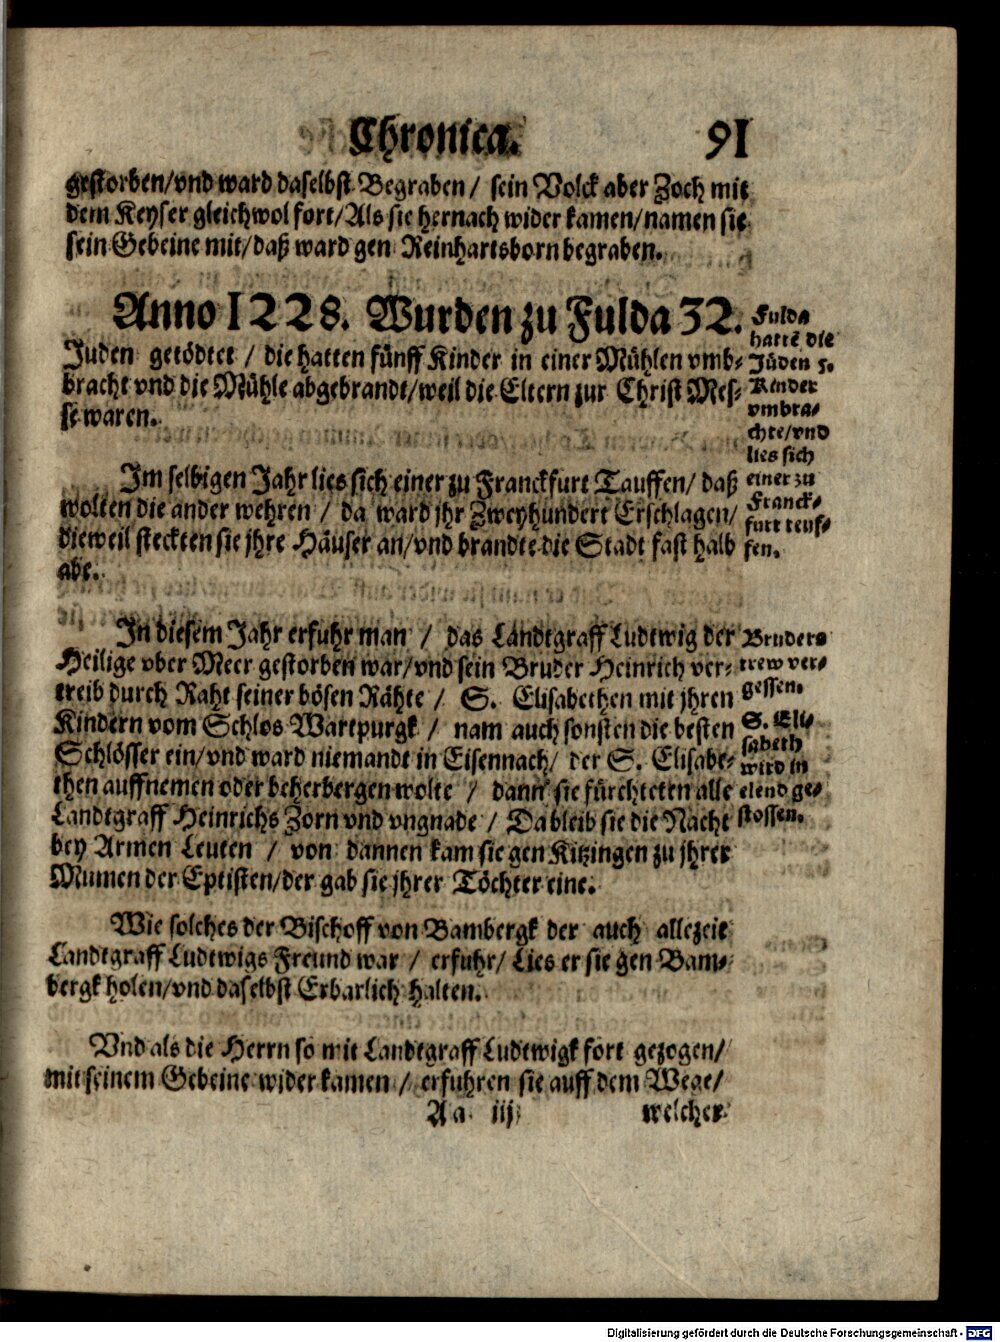 Chronica. 91
gestorben/vnd ward daselbst Begraben / sein Volck aber Zoch mit
dem Keyser gleichwol fort/Als sie hernach wider kamen/namen sie
sein Gebeine mit/daß ward gen Reinhartsborn begraben.
Anno 1228. Wurden zu Fulda 32.
Juden getödtet / die hatten fünff Kinder in einer Mühlen vmb-
bracht vnd die Mühle abgebrandt/weil die Eltern zur Christ Mes-
se waren.
Fulda
hattē die
Jüden 5.
Kinder
vmbra-
chte/vnd
lies sich
einer zu
Franck-
furt teuf-
fen.
Im selbigen Jahr lies sich einer zu Franckfurt Tauffen/ daß
wolten die ander wehren / da ward jhr Zweyhundert Erschlagen/
dieweil steckten sie jhre Häuser an/vnd brandte die Stadt fast halb
abe.
In diesem Jahr erfuhr man / das Landtgraff Ludtwig der
Heilige vber Meer gestorben war/vnd sein Bruder Heinrich ver-
treib durch Raht seiner bösen Rähte / S. Elisabethen mit jhren
Kindern vom Schlos Wartpurgk / nam auch sonsten die besten
Schlösser ein/vnd ward niemandt in Eisennach/ der S. Elisabe-
then auffnemen oder beherbergen wolte / dann sie fürchteten alle
Landtgraff Heinrichs Zorn vnd vngnade / Da bleib sie die Nacht
bey Armen Leuten / von dannen kam sie gen Kitzingen zu jhrer
Mumen der Eptisten/der gab sie jhrer Töchter eine.
Bruders
trew ver-
gessen.
S. Eli-
sabeth
wird in
elend ge-
stossen.
Wie solches der Bischoff von Bambergk der auch allezeit
Landtgraff Ludtwigs Freund war / erfuhr/ Lies er sie gen Bam-
bergk holen/vnd daselbst Erbarlich halten.
Vnd als die Herrn so mit Landtgraff Ludtwigk fort gezogen/
mit seinem Gebeine wider kamen / erfuhren sie auff dem Wege/
Aa iij welcher
Digitalisierung gefördert durch die Deutsche Forschungsgemeinschaft - DFG